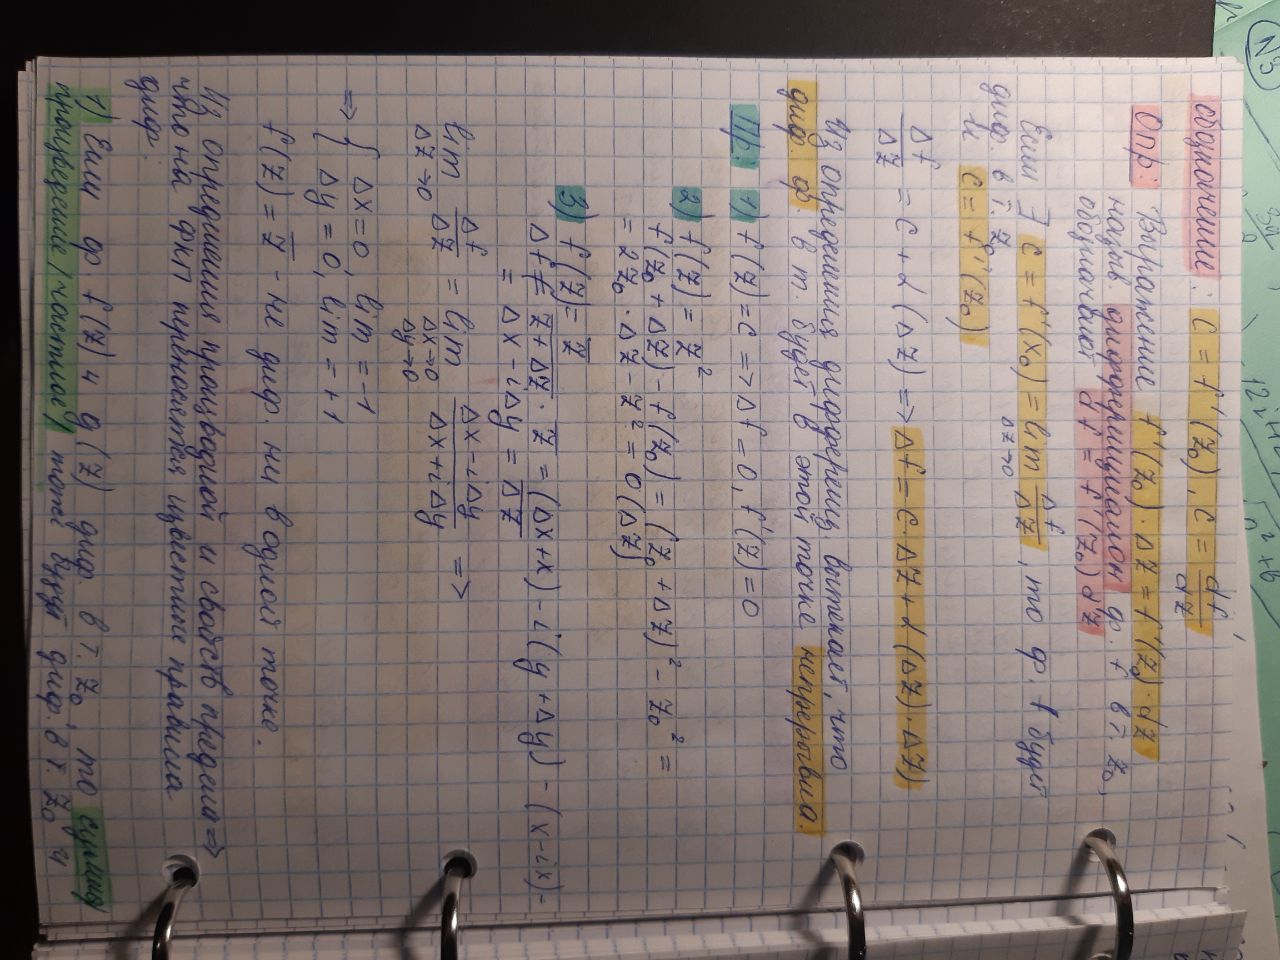 обозначение: C = f'(z₀), C = df/dz
Опр: Выражение f'(z₀)·Δz = f'(z₀)·dz
назыв. дифференциалом ф. f в т. z₀,
обозначают df = f'(z₀)dz
Если ∃ C = f'(x₀) = lim Δz→0 Δf/Δz, то ф. f будет
диф. в т. z₀
и C = f'(z₀)
Δf/Δz = C + α(Δz) => Δf = C·Δz + α(Δz)·Δz)
Из определения дифференц. вытекает, что
диф. ф. в т. будет в этой точке непрерывна.
Пр: 1) f(z) = C => Δf = 0, f'(z) = 0
2) f(z) = z²
f(z₀ + Δz) - f(z₀) = (z₀ + Δz)² - z₀² =
= 2z₀·Δz - z² = 0(Δz)
3) f(z) = z̅
Δf = z + Δz · z = (Δx + x) - i(y + Δy) - (x - ix) -
= Δx - iΔy = Δz
lim Δz→0 Δf/Δz = lim Δx→0 Δy→0 (Δx - iΔy)/(Δx + iΔy) =>
=> { Δx = 0, lim = -1
Δy = 0, lim = +1
f(z) = z̅ - не диф. ни в одной точке.
Из определения производной и свойств предела =>
что на фкп переносятся известные правила
диф.
1) Если ф f(z) и g(z) диф. в т. z₀, то сумма,
произведение (частное) тоже будут диф. в т. z₀ и
N3